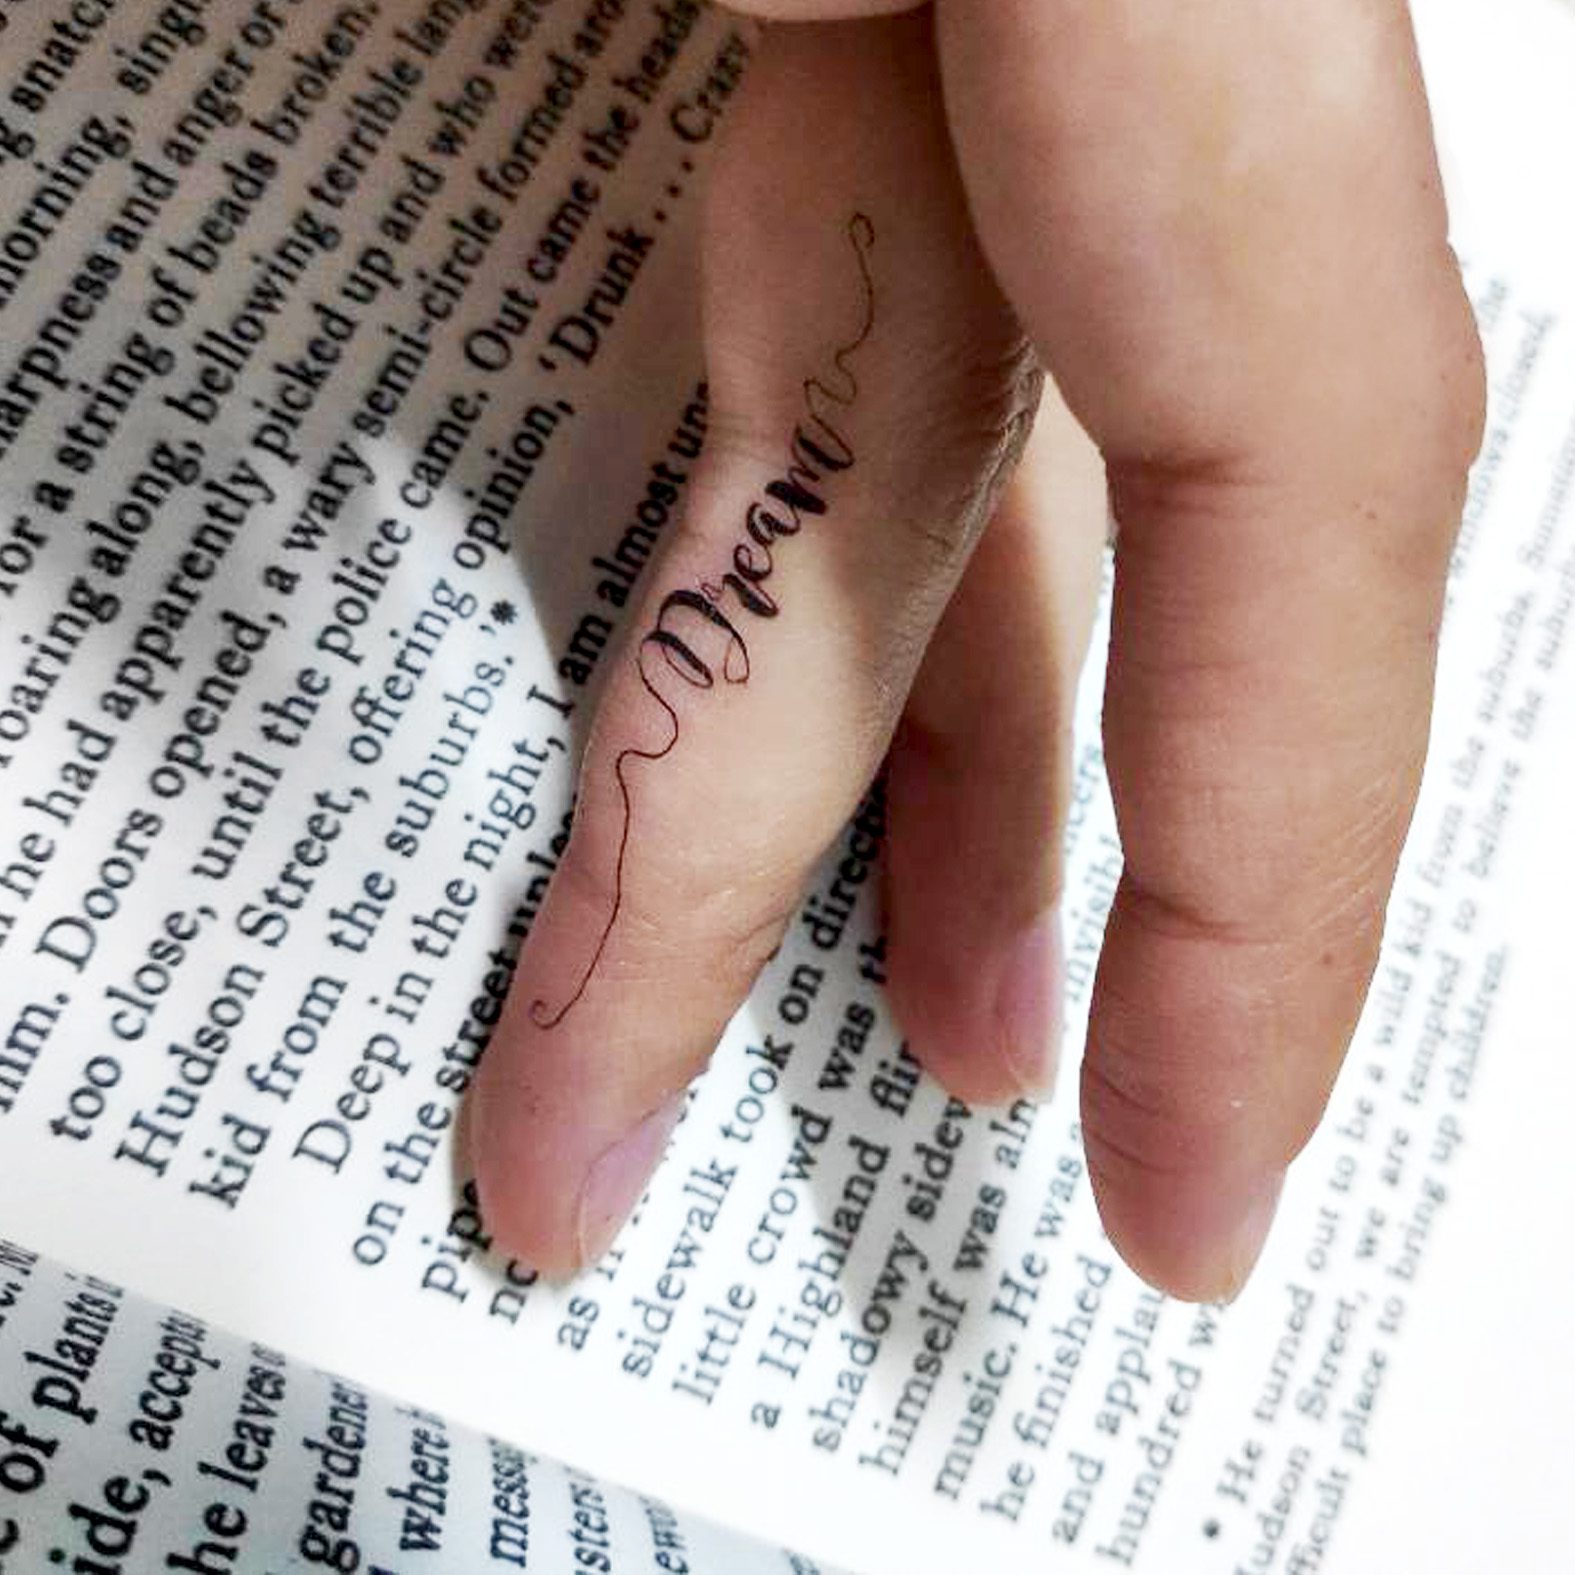 Dream
snatch
morning, singi
sharpness and anger or
for a string of beads broken.
roaring along, bellowing terrible lang
he had apparently picked up and who were
him. Doors opened, a wary semi-circle formed aro
too close, until the police came. Out came the heads
Hudson Street, offering opinion, 'Drunk . . . Crazy
kid from the suburbs.'*
Deep in the night, I am almost una
on the street unles
pipe
no
as
sidewalk took on direct
little crowd was th
a Highland flin
shadowy sidew
himself was alm
music. He was a
he finished
and applau
hundred w
* He turned out to be a wild kid from the suburbs.
Hudson Street, we are tempted to believe the suburbs
difficult place to bring up children.
of plants
ide, accept
he leaves
gardener
where
mess